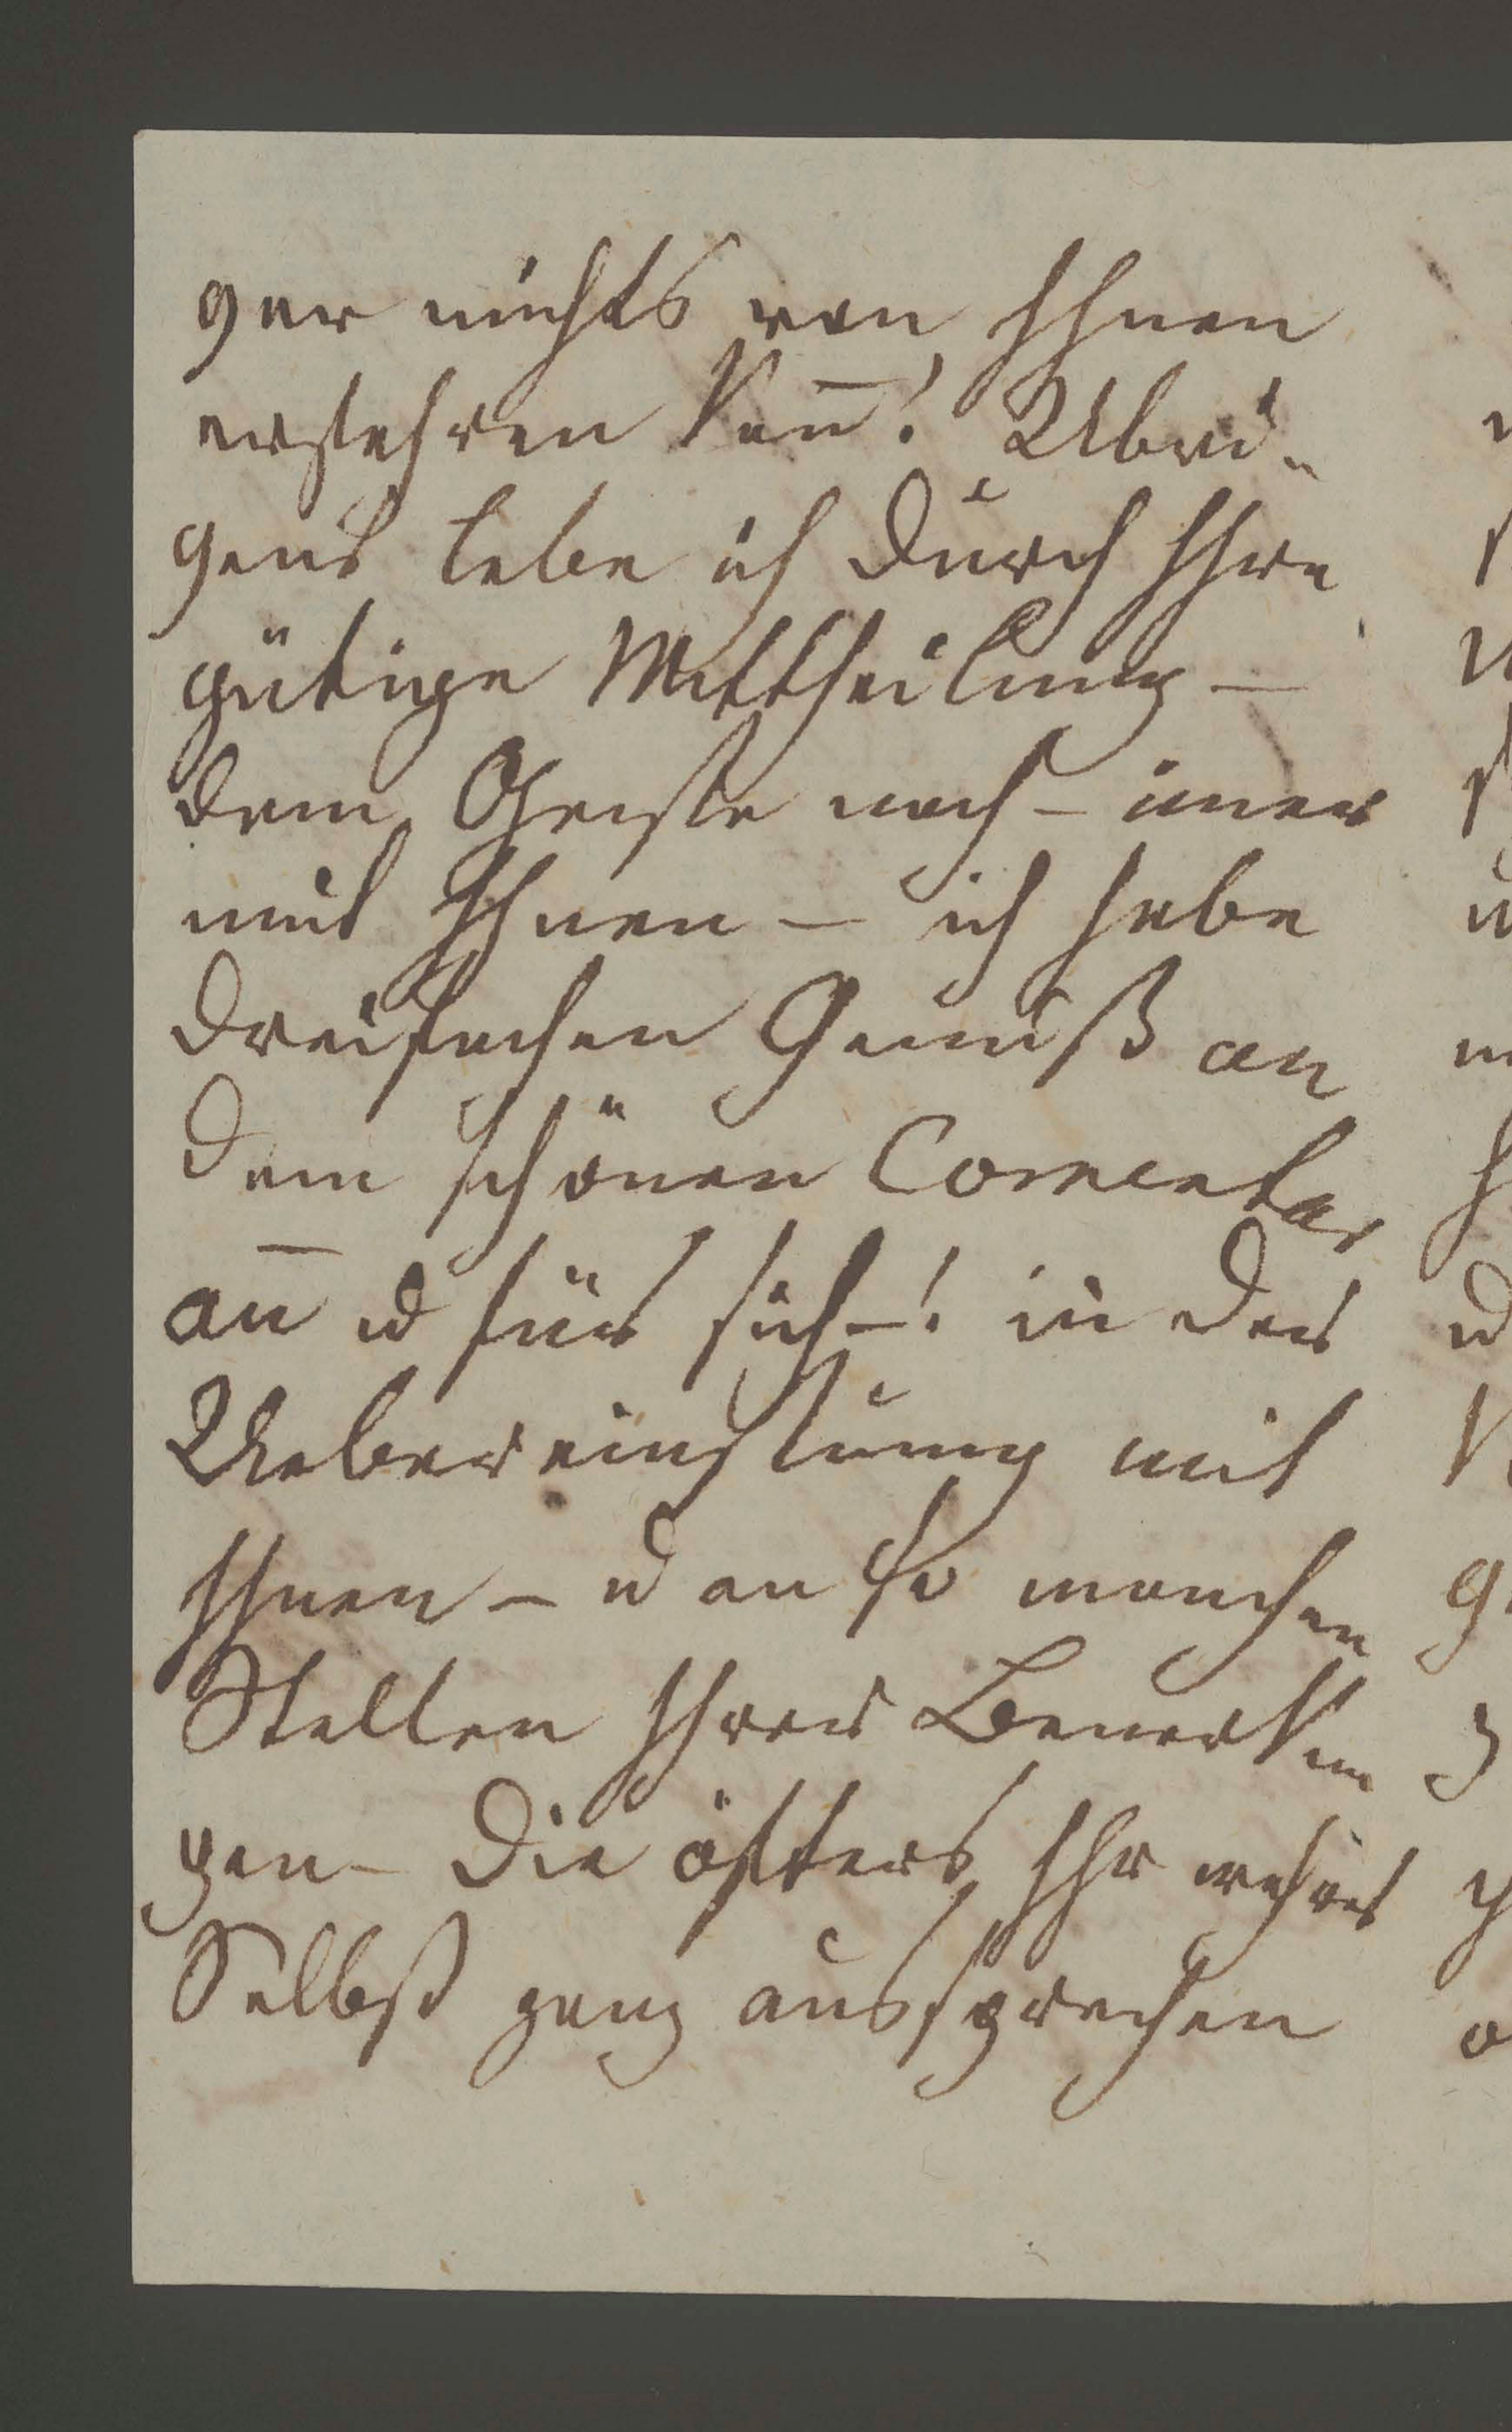 gar nichts von Ihnen
erfahren kan̄! Übri-
gens lebe ich durch Ihre
gütige Mittheilung –
dem Geiste nach – imer
mit Ihnen – ich habe
dreifachen Genuß an
dem schönen Comentar
an̄ u für sich –! in der
Uebereinstimung mit
Ihnen – u an so manchen
Stellen Ihrer Bemerkun
gen – die öfters Ihr wahres
Selbst ganz aussprechen